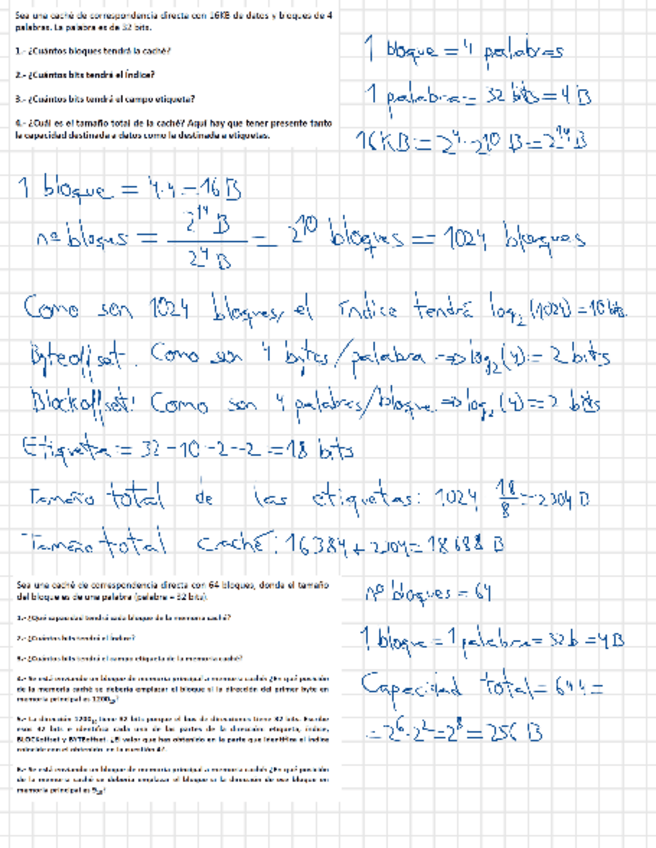 Sea una caché de correspondencia directa con 16KB de datos y bloques de 4
palabras. La palabra es de 32 bits.
1.- ¿Cuántos bloques tendrá la caché?
2.- ¿Cuántos bits tendrá el índice?
3.- ¿Cuántos bits tendrá el campo etiqueta?
4.- ¿Cuál es el tamaño total de la caché? Aquí hay que tener presente tanto
la capacidad destinada a datos como la destinada a etiquetas.
1 bloque = 4 palabras
1 palabra = 32 bits = 4 B
16KB = 2⁴·2¹⁰ B = 2¹⁴ B
1 bloque = 4·4 = 16 B
nº bloques = 2¹⁴ B / 2⁴ B = 2¹⁰ bloques = 1024 bloques
Como son 1024 bloques, el índice tendrá log₂(1024) = 10 bits.
Byteoffset: Como son 4 bytes/palabra => log₂(4) = 2 bits
Blockoffset: Como son 4 palabras/bloque => log₂(4) = 2 bits
Etiqueta = 32 - 10 - 2 - 2 = 18 bits
Tamaño total de las etiquetas: 1024 18/8 = 2304 B
Tamaño total caché: 16384 + 2304 = 18688 B
Sea una caché de correspondencia directa con 64 bloques, donde el tamaño
del bloque es de una palabra (palabra = 32 bits).
1.- ¿Qué capacidad tendrá cada bloque de la memoria caché?
2.- ¿Cuántos bits tendrá el índice?
3.- ¿Cuántos bits tendrá el campo etiqueta de la memoria caché?
4.- Se está enviando un bloque de memoria principal a memoria caché ¿En qué posición
de la memoria caché se debería emplazar el bloque si la dirección del primer byte en
memoria principal es 1200₁₀?
5.- La dirección 1200₁₀ tiene 32 bits porque el bus de direcciones tiene 32 bits. Escribe
esos 32 bits e identifica cada una de las partes de la dirección etiqueta, índice,
BLOCKoffset y BYTEoffset. ¿El valor que has obtenido en la parte que identifica al índice
coincide con el obtenido en la cuestión 4?
6.- Se está enviando un bloque de memoria principal a memoria caché ¿En qué posición
de la memoria caché se debería emplazar el bloque si la dirección de ese bloque en
memoria principal es
nº bloques = 64
1 bloque = 1 palabra = 32b = 4B
Capacidad total = 64·4 =
= 2⁶·2² = 2⁸ = 256 B